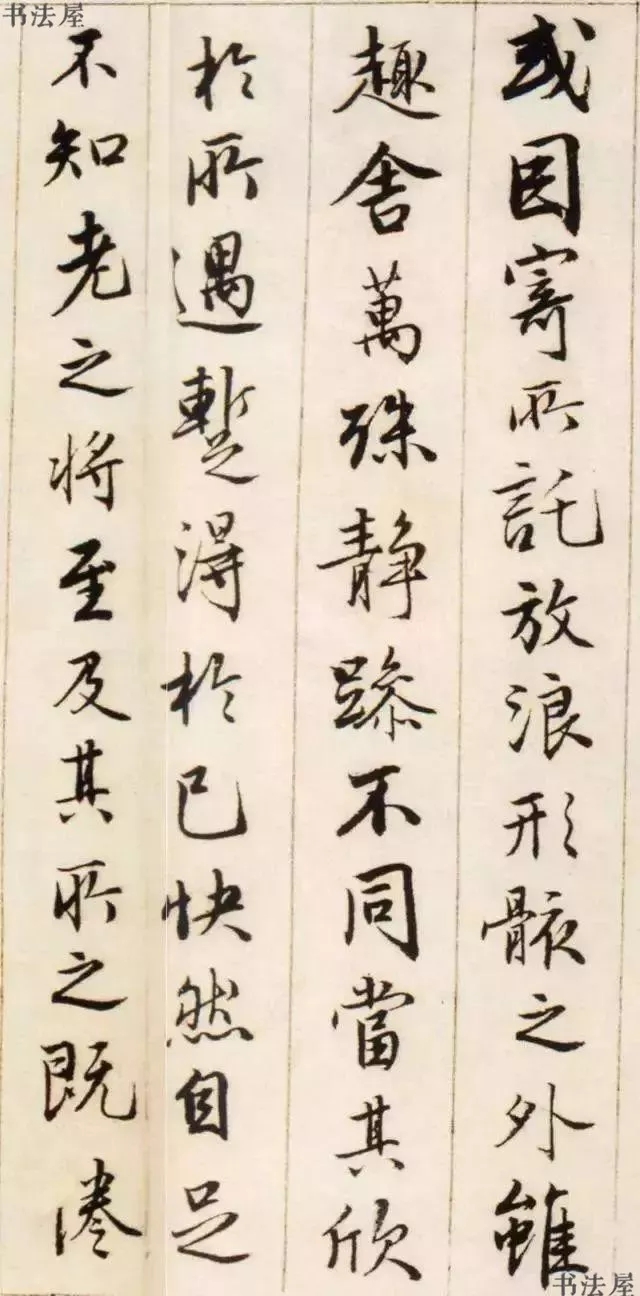 书法屋
或因寄所託放浪形骸之外雖
趣舍萬殊静躁不同當其欣
於所遇蹔得於己快然自足
不知老之将至及其所之既惓
书法屋